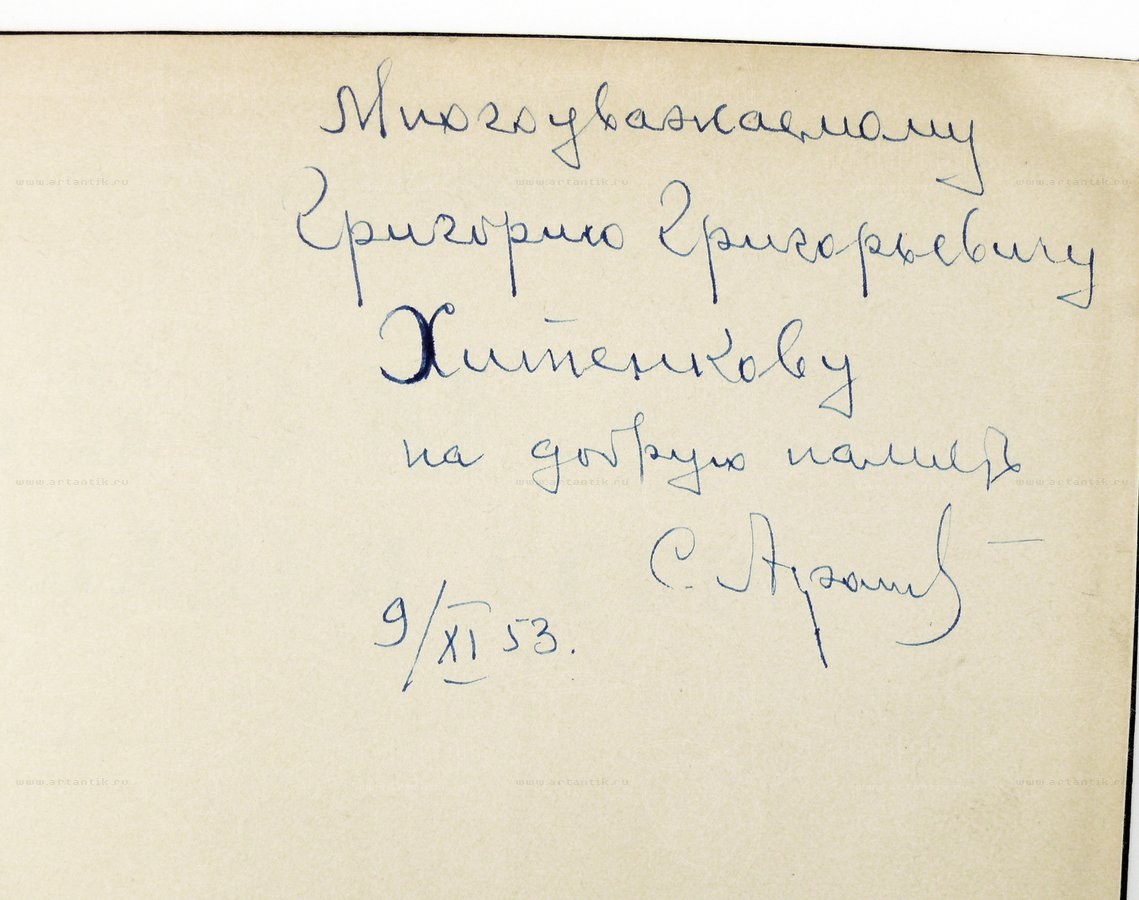 Многоуважаемому
www.artantik.ru www.artantik.ru www.artantik.ru
Григорию Григорьевичу
Хитенкову
на добрую память
www.artantik.ru www.artantik.ru www.artantik.ru
С.
9/XI 53.
www.artantik.ru www.artantik.ru www.artantik.ru